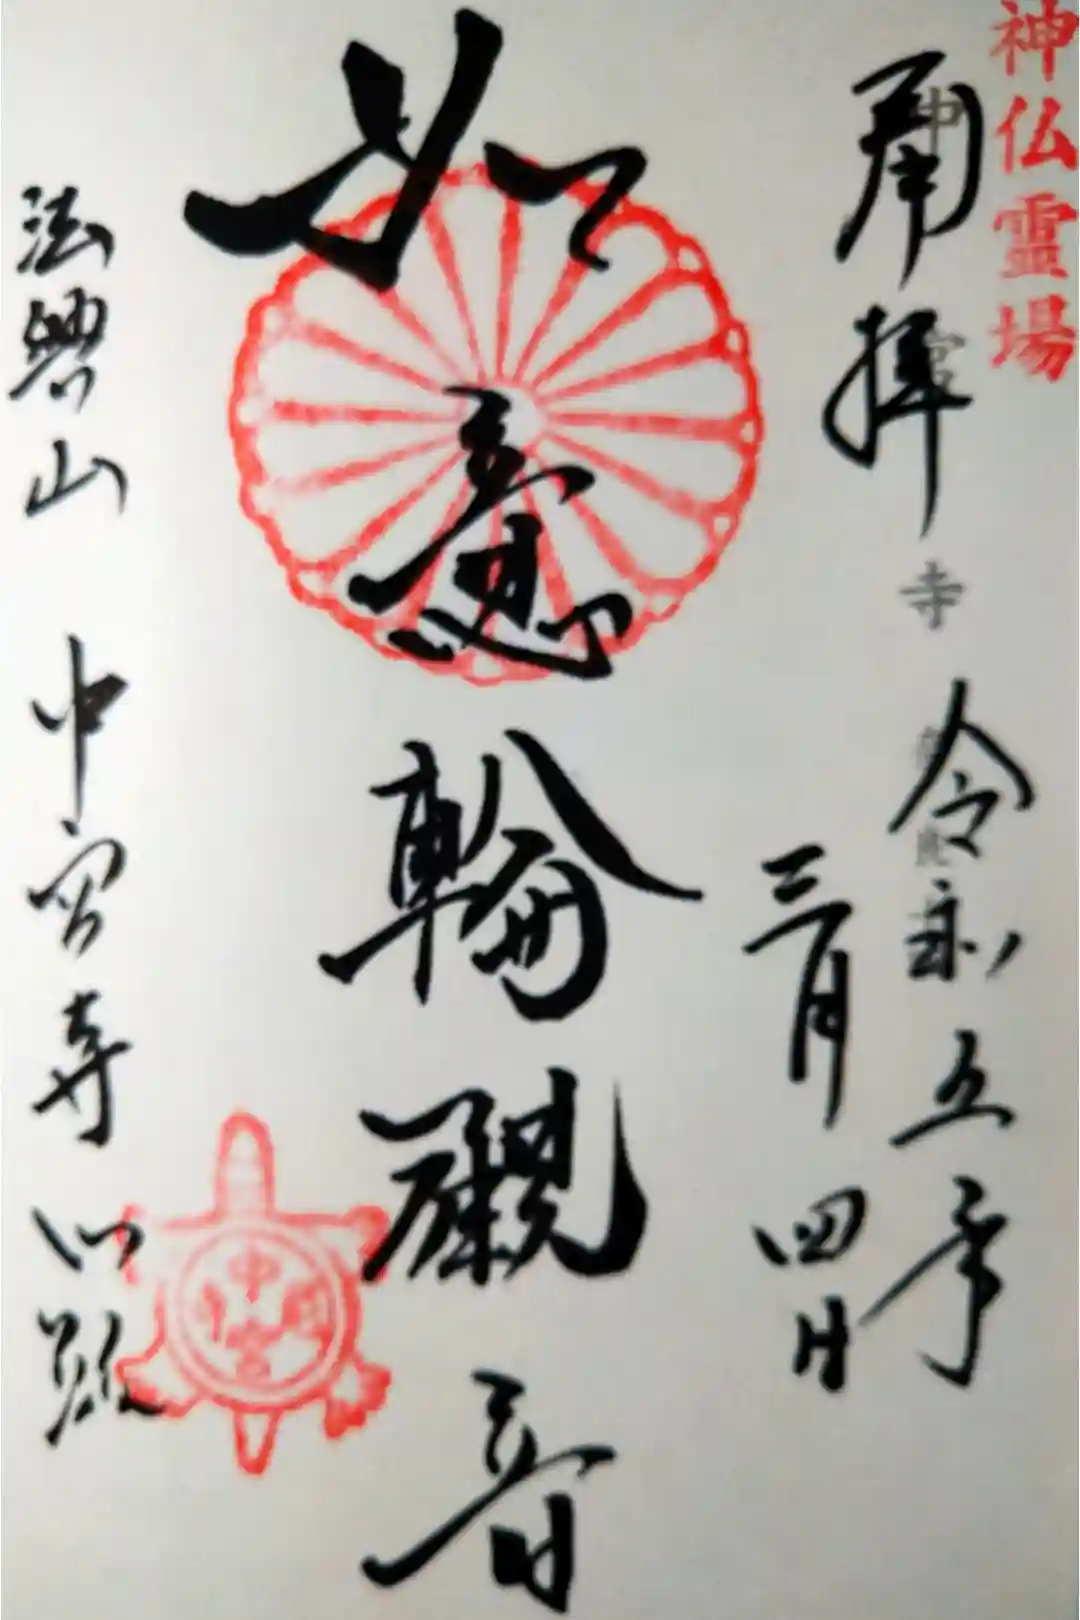 神仏霊場
奉拝 令和五年
三月四日
中宮寺
如意輪観音
中宮
法興山 中宮寺門跡